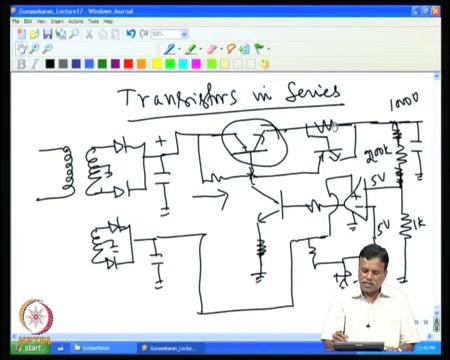 Gunasekaran_Lecture17 - Windows Journal
File Edit View Insert Actions Tools Help
100%
B I
Transistors in Series
1000V
+
200k
5V
5V
1k
start
Gunasekaran
Gunasekaran_Lectu...